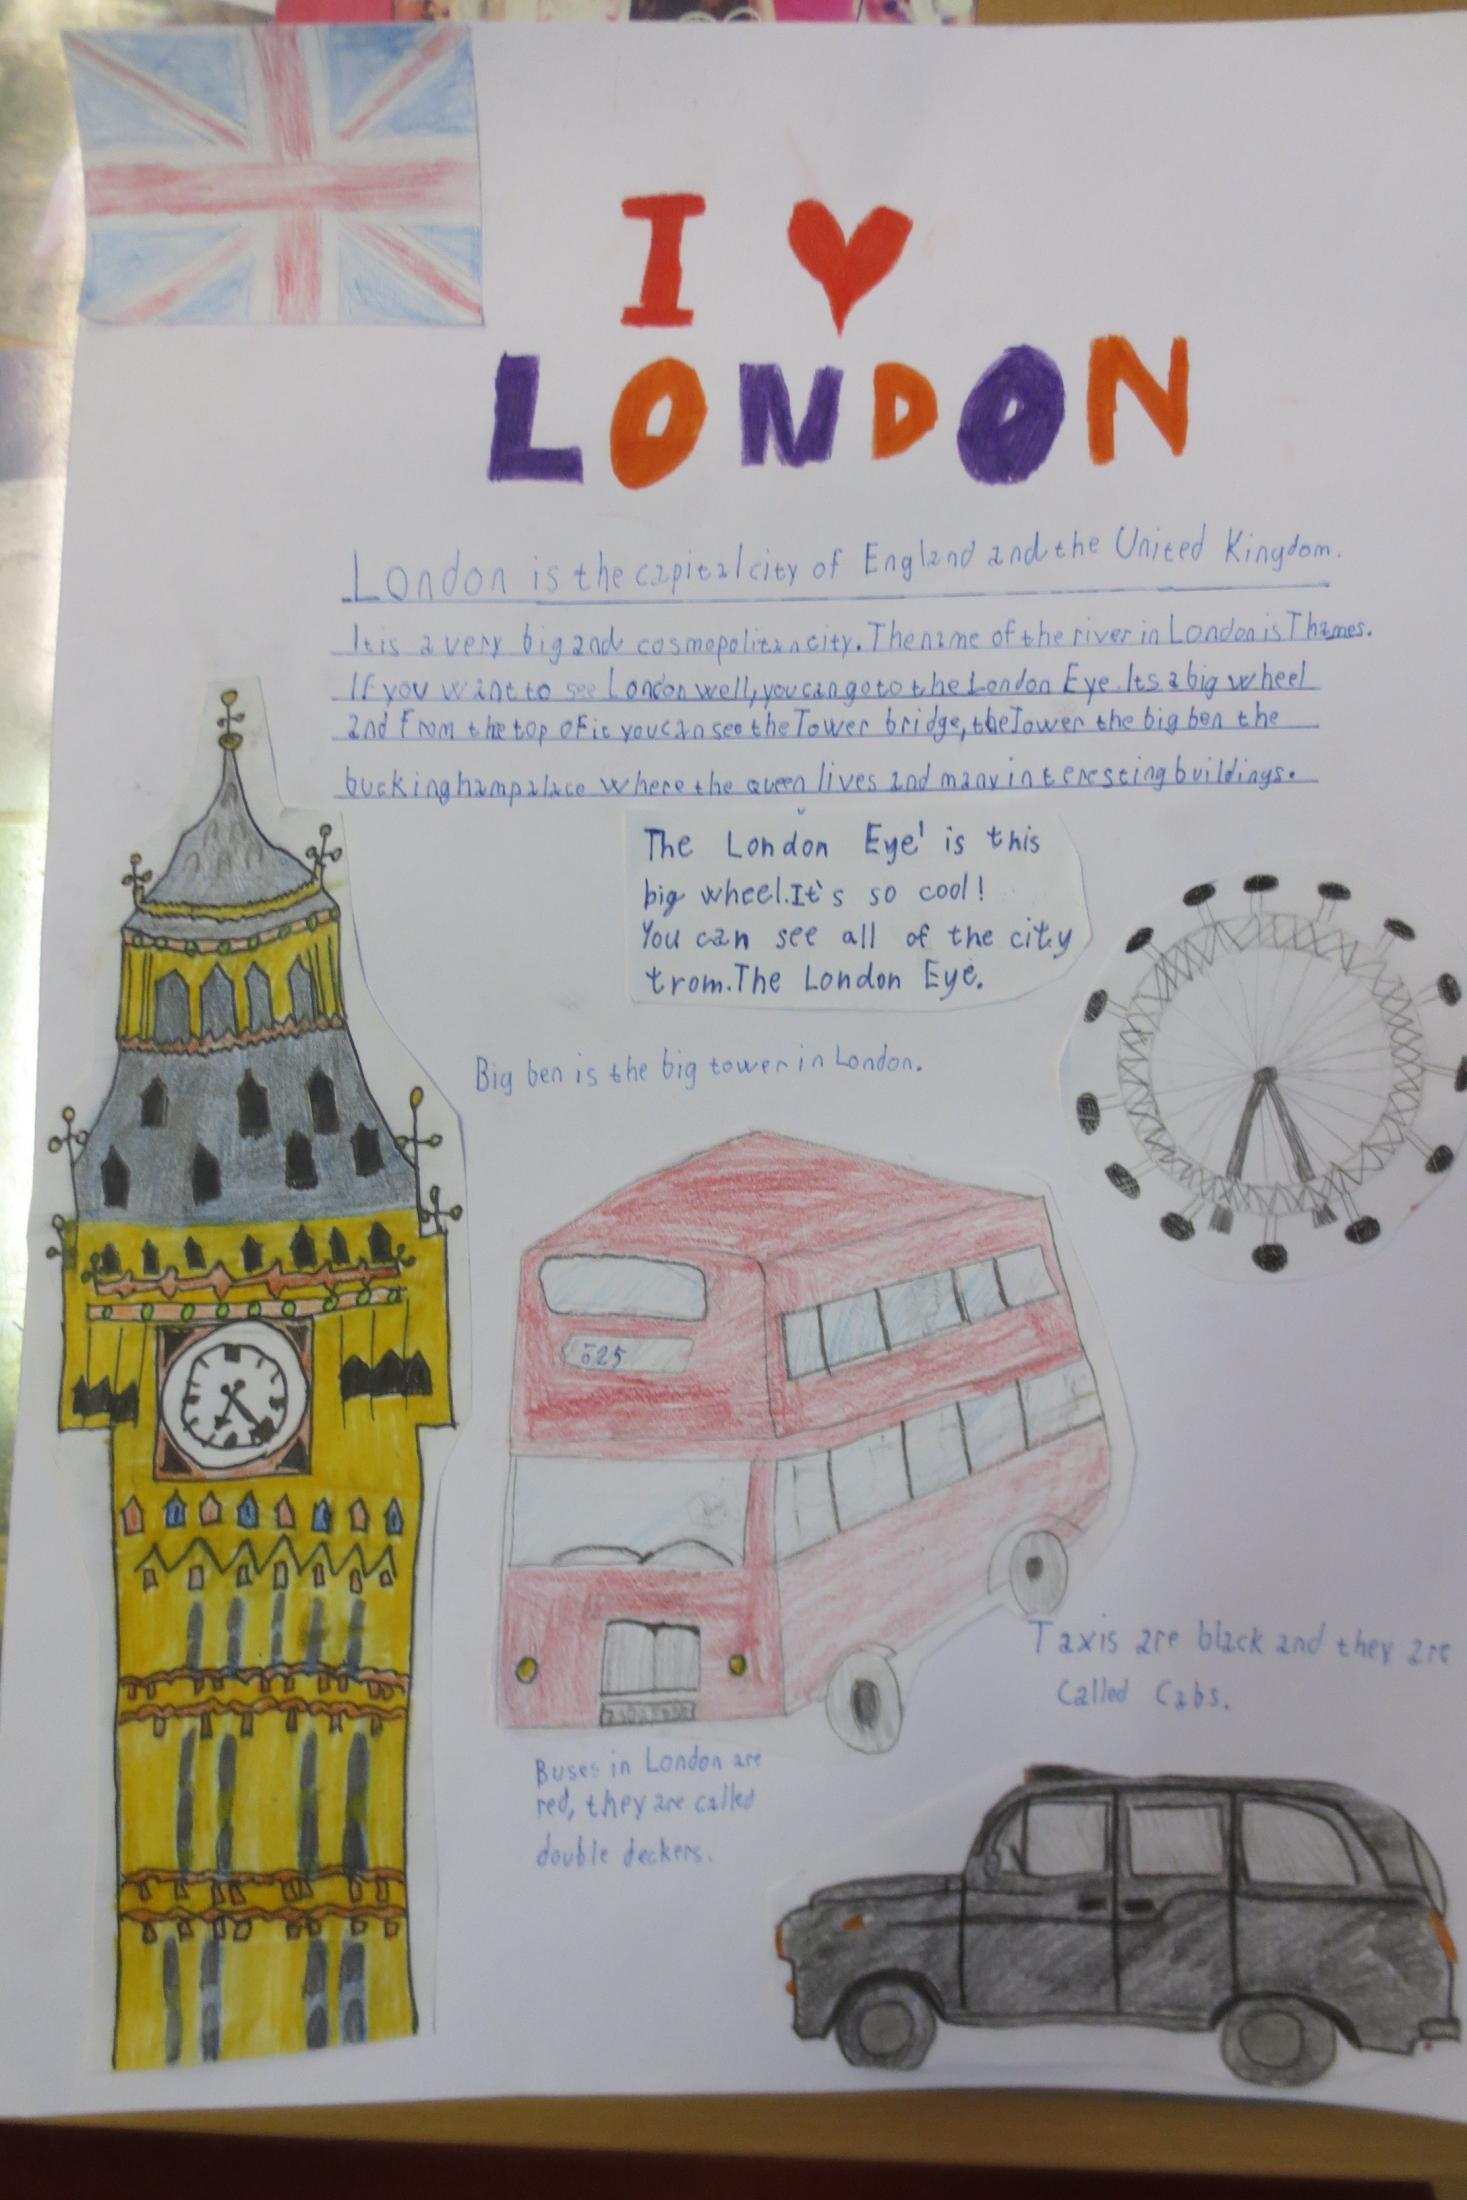 I ♥
LONDON
London is the capital city of England and the United Kingdom.
It is a very big and cosmopolitan city. The name of the river in London is Thames.
If you want to see London well, you can go to the London Eye. Its a big wheel
and from the top of it you can see the Tower bridge, the Tower the big ben the
buckingham palace where the queen lives and many interesting buildings.
The London Eye' is this
big wheel. It's so cool!
You can see all of the city
from. The London Eye.
Big ben is the big tower in London.
625
Taxis are black and they are
Called Cabs.
Buses in London are
red, they are called
double deckers.